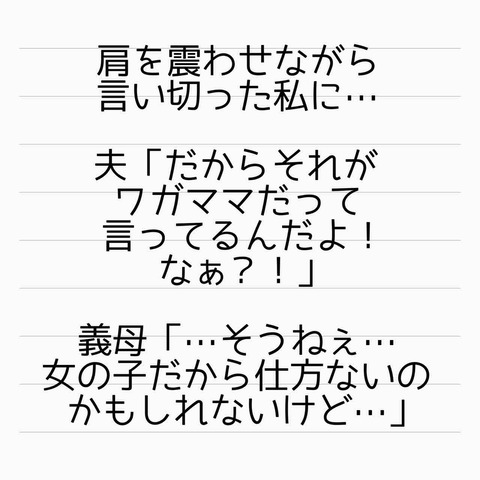 肩を震わせながら
言い切った私に…
夫「だからそれが
ワガママだって
言ってるんだよ！
なぁ？！」
義母「…そうねぇ…
女の子だから仕方ないの
かもしれないけど…」